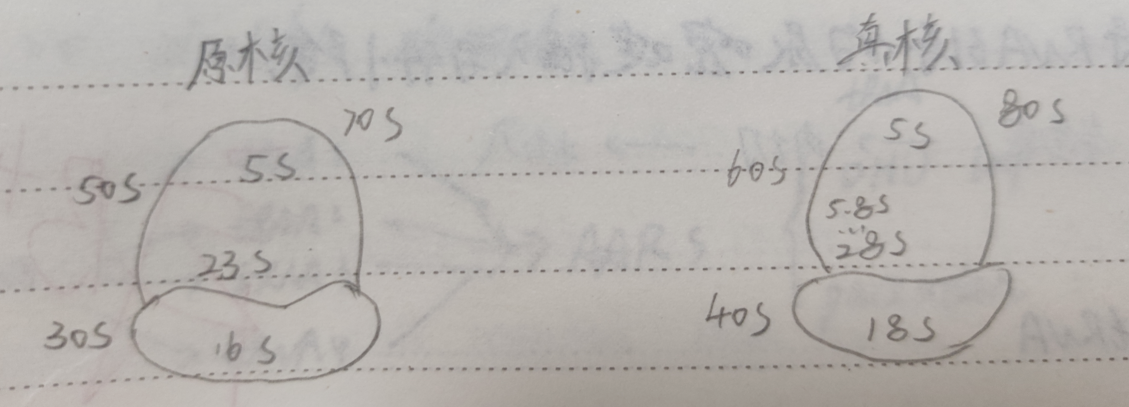 原核
70S
50S
5S
23S
30S
16S
真核
80S
60S
5S
5.8S
28S
40S
18S